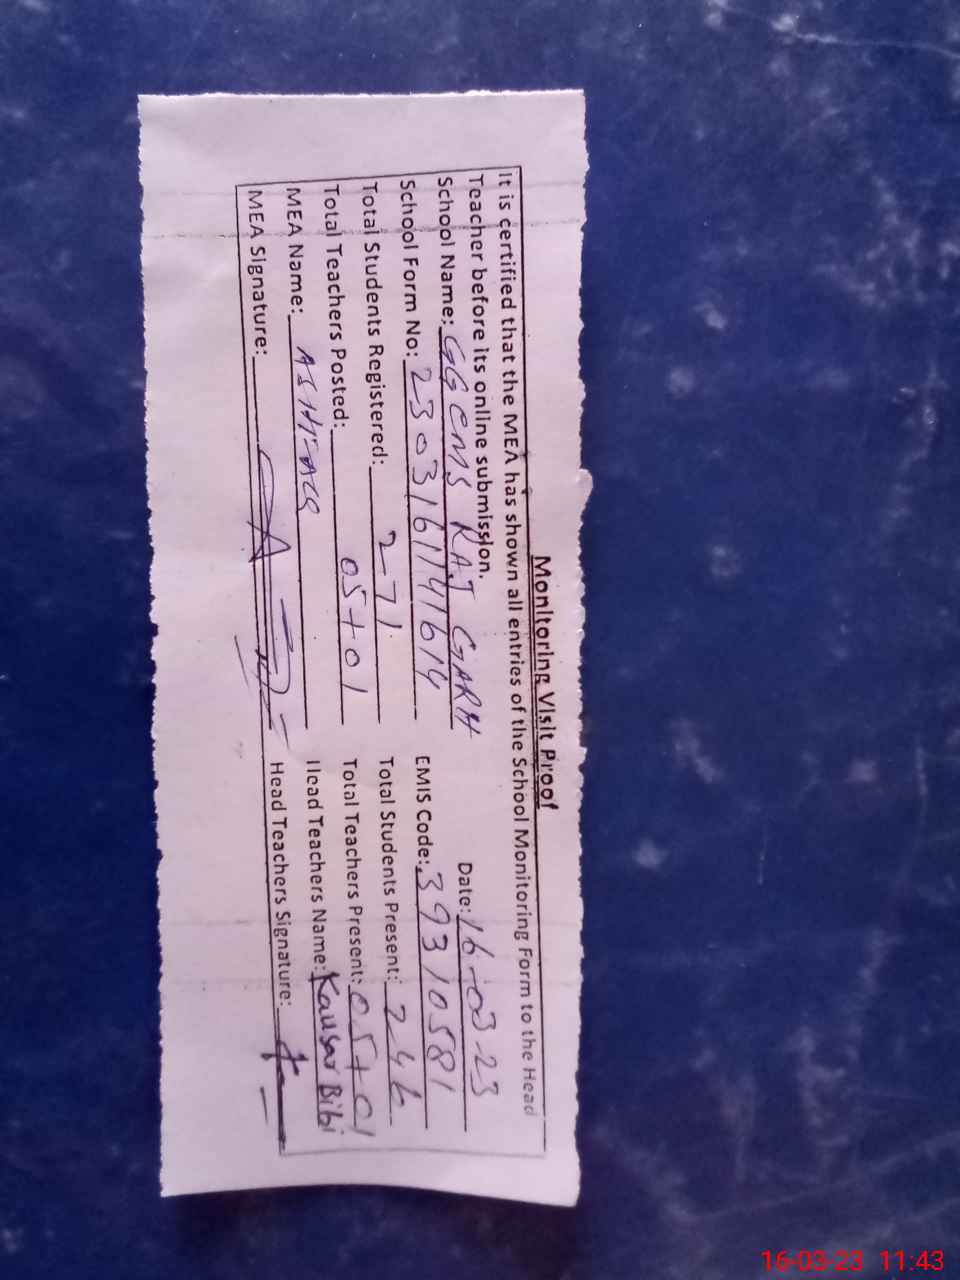 Monitoring Visit Proof
It is certified that the MEA has shown all entries of the School Monitoring Form to the Head
Teacher before its online submission.
Date: 16-03-23
School Name: GGCMS RAJ GARH
EMIS Code: 39310581
School Form No: 2303161141614
Total Students Present: 246
Total Students Registered: 271
Total Teachers Present: 05+01
Total Teachers Posted: 05+01
Head Teachers Name: Kausar Bibi
MEA Name:
Head Teachers Signature:
MEA Signature:
16-03-23 11:43